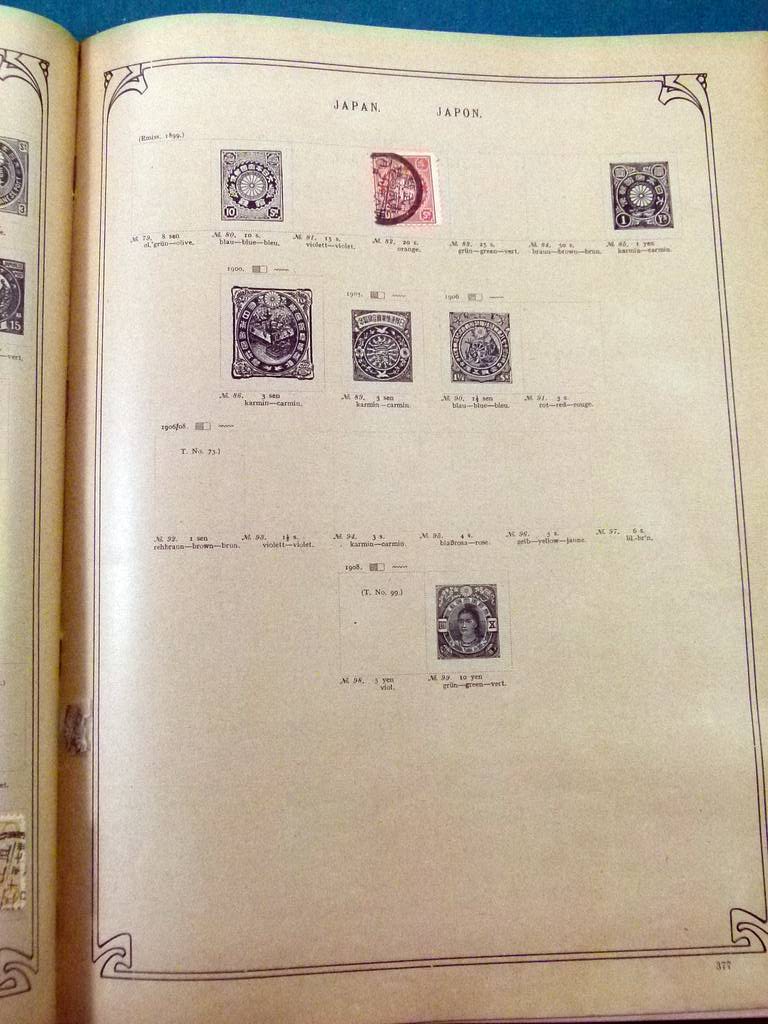 JAPAN. JAPON.
(Emiss. 1899.)
10 Sn
1 Yn
№. 79. 8 sen №. 80. 10 s. №. 81. 15 s. №. 82. 20 s. №. 83. 25 s. №. 84. 50 s. №. 85. 1 yen
ol.'grün—olive. blau—blue—bleu. violett—violet. orange. grün—green—vert. braun—brown—brun. karmin—carmin.
1900.
1905. 1906
15
3
№. 86. 3 sen №. 89. 3 sen №. 90. 1½ sen №. 91. 3 s.
karmin—carmin. karmin—carmin. blau—blue—bleu. rot—red—rouge.
vert.
1906/08.
T. No. 73.)
№. 92. 1 sen №. 93. 1½ s. №. 94. 3 s. №. 95. 4 s. №. 96. 5 s. №. 97. 6 s.
rehbraun—brown—brun. violett—violet. karmin—carmin. blaßrosa—rose. gelb—yellow—jaune. lil.-br'n.
1908.
(T. No. 99.)
№. 98. 5 yen №. 99. 10 yen
viol. grün—green—vert.
377